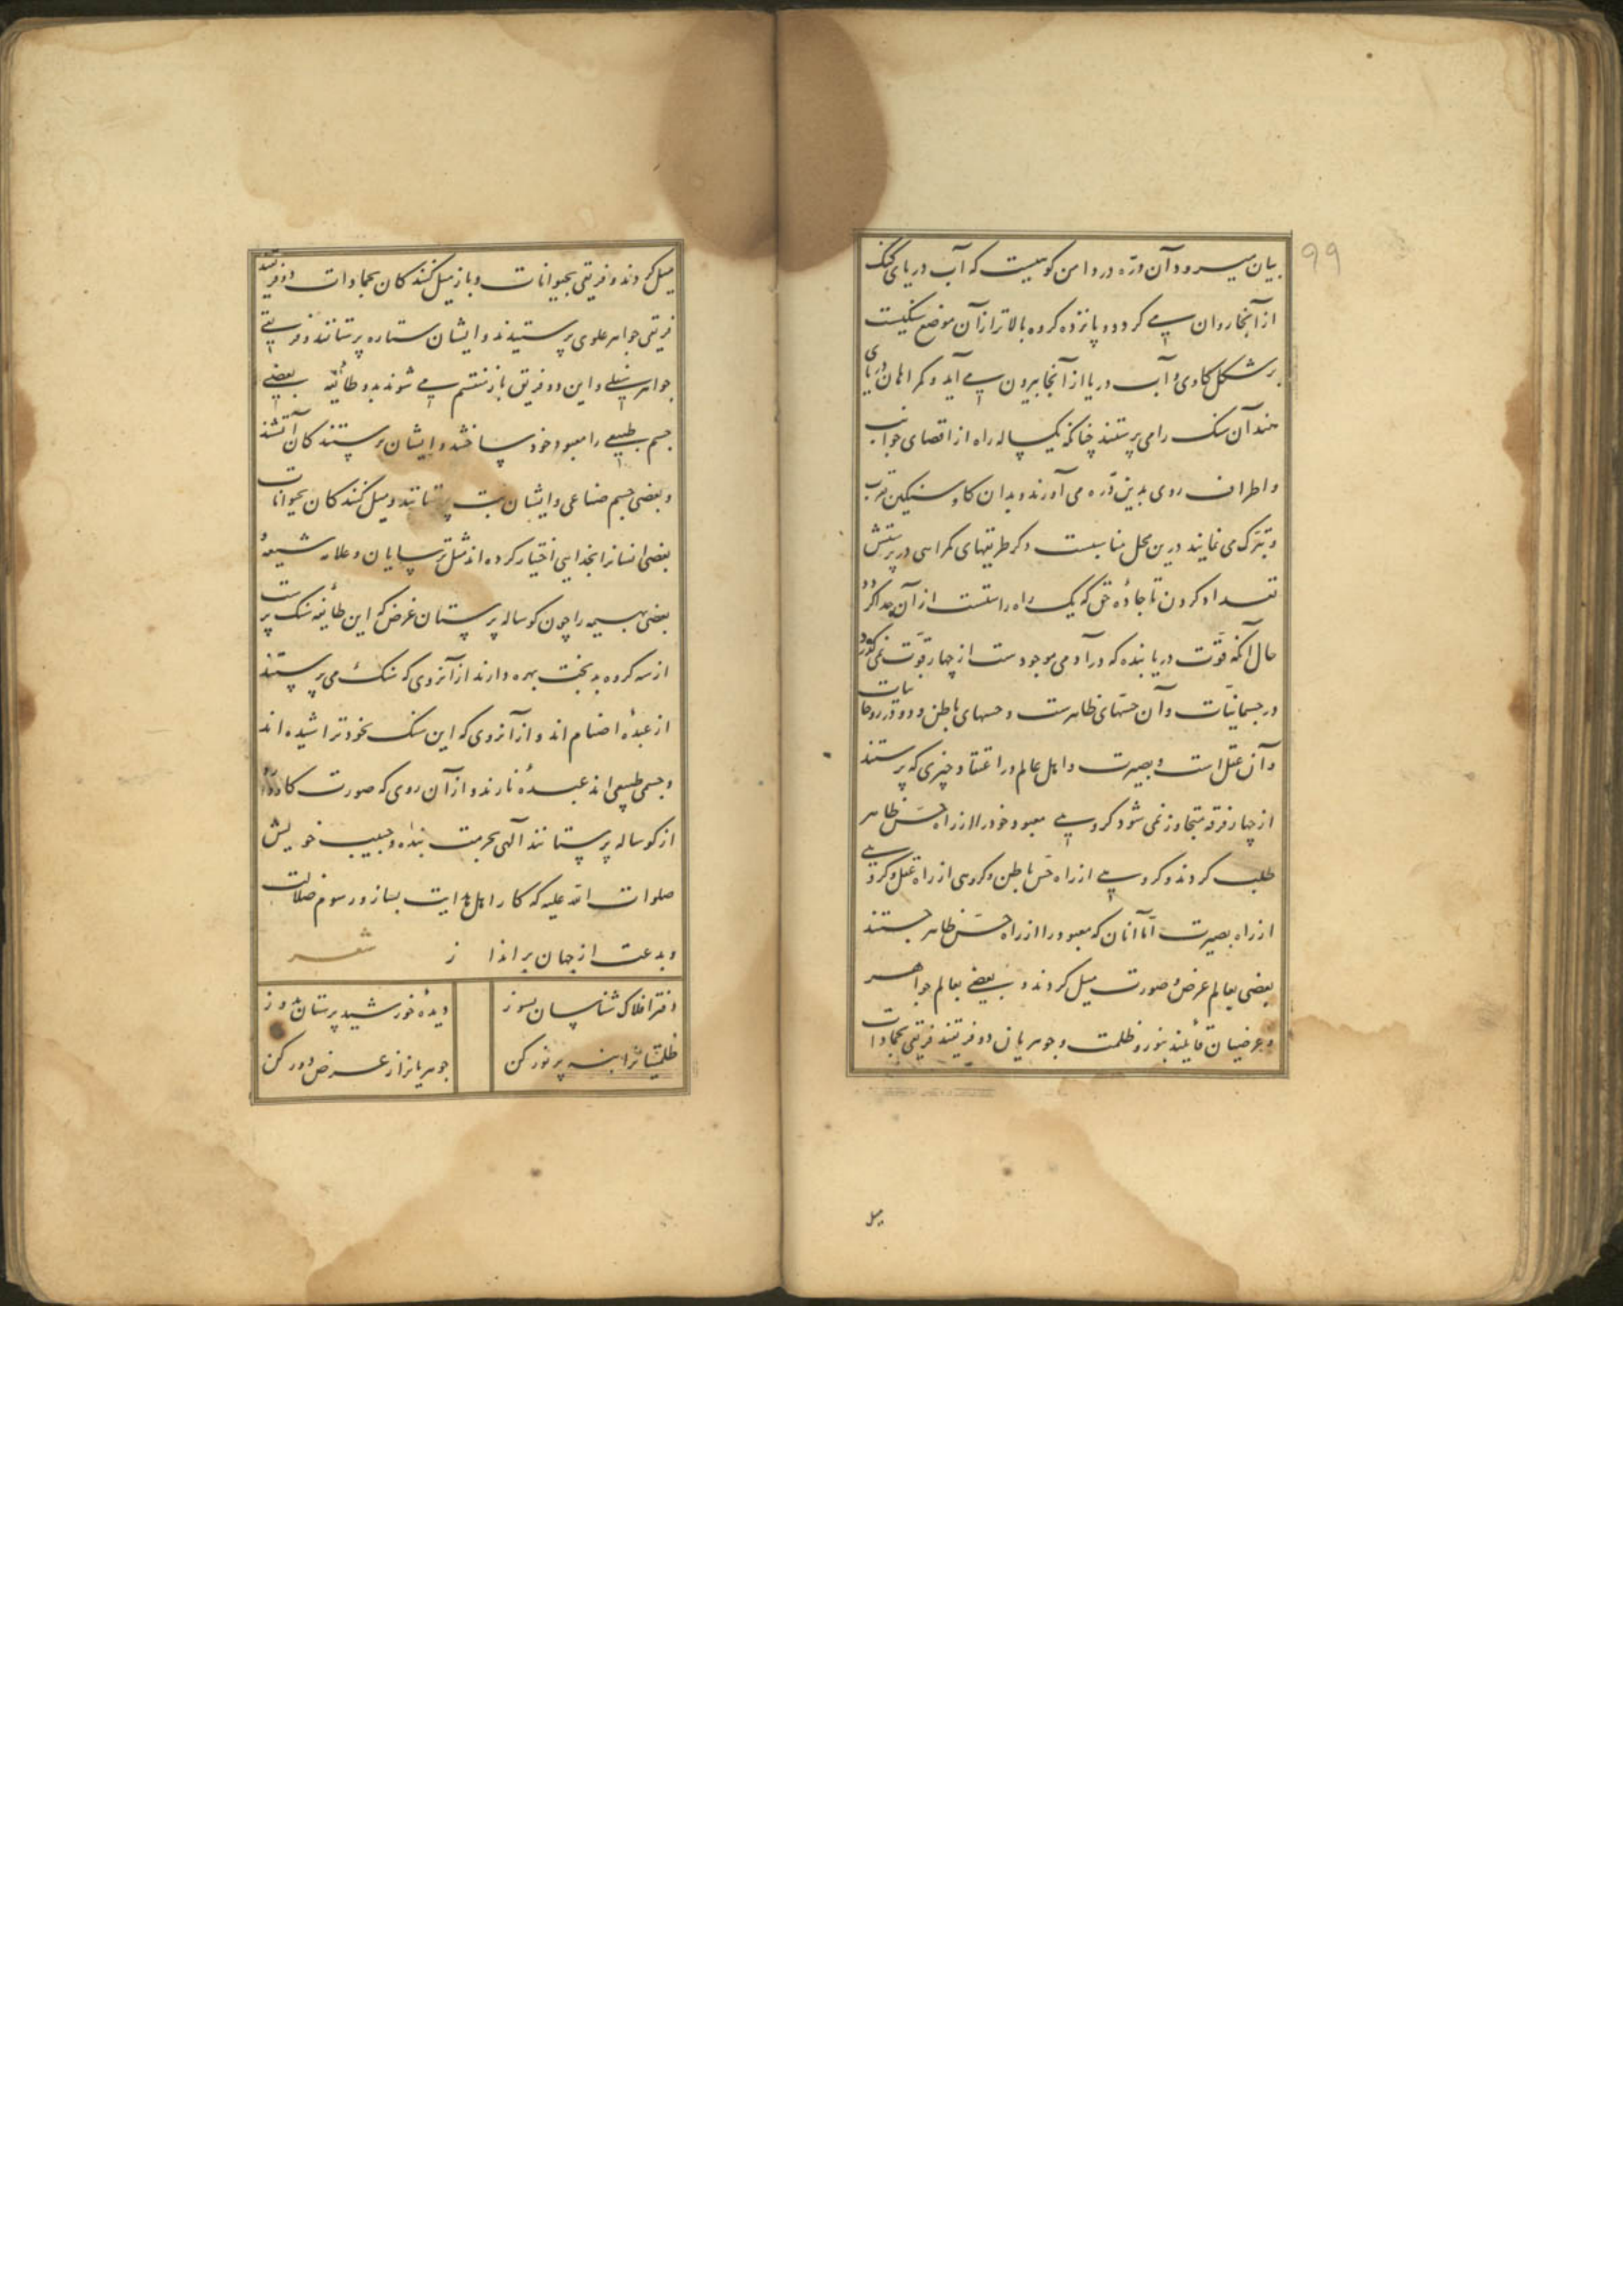 ۹۹
بیان میرود آن درّه در دامن کوهیست که آب دریای گنگ
از آنجا روان می کردد و پانزده کروه بالاتر از آن موضع سنکیست
بر شکل کاوی و آب دریا از آنجا بیرون می آید و کمراهان دریای
هند آن سنک را می پرستند چنانکه یکساله راه از اقصای جوانب
و اطراف روی بدین درّه می آورند و بدان کاو سنکین تقرب
و تبرّک می نمایند درین محل مناسبست ذکر طریقهای کمراهی در پرستش
تعداد کردن تا جادهٔ حق که یک راه راستست از آن جدا کردد
حال آنکه قوّت دریابنده که در آدمی موجودست از چهار قوّت نمی کذرد
در جسمانیّات و آن حسّهای ظاهرست و حسهای باطن و دو در روحانیات
و آن عقل است و بصیرت و اهل عالم در اعتقاد چیزی که پرستند
از چهار فرقه متجاوز نمی شود کروهی معبود خود را از راه حسّ ظاهر
طلب کردند و کروهی از راه حسّ باطن و کروهی از راه عقل و کروهی
از راه بصیرت امّا آنان که معبود را از راه حسّ ظاهر جستند
بعضی بعالم عرض و صورت میل کردند و بعضی بعالم جواهر
و عرضیان قائیند بنور و ظلمت و جوهریان دو فریقند فریقی بجمادات
میل
میل کردند و فریقی بحیوانات و باز میل کنندکان بجمادات دو فریقند
فریقی جواهر علوی پرستیدند و ایشان ستاره پرستانند و فریقی
جواهر سفلی و این دو فریق باز منقسم می شوند بدو طائفه بعضی
جسم طبیعی را معبود خود ساختند و ایشان پرستندکان آتشند
و بعضی جسم صناعی و ایشان بت پرستانند و میل کنندکان بحیوانات
بعضی انسانرا بخدایی اختیار کرده اند مثل ترسایان و غلاه شیعه و
بعضی بهیمه را چون کوساله پرستان غرض که این طائفه سنک پرست
از سه کروه بدبخت بهره دارند از آنروی که سنک می پرستند
از عبدهٔ اصنام اند و از آنروی که این سنک بخود تراشیده اند
و جسمی طبیعی اند عبدهٔ نارند و از آن روی که صورت کاو دارد
از کوساله پرستانند الهی بحرمت بنده و حبیب خویش
صلوات الله علیه که کار اهل هدایت بساز و رسوم ضلالت
و بدعت از جهان برانداز شعر
دفتر افلاک شناسان بسوز دیدهٔ خورشید پرستان بدوز
ظلمتیانرا بنه پر نور کن جوهریانرا ز عرض دور کن